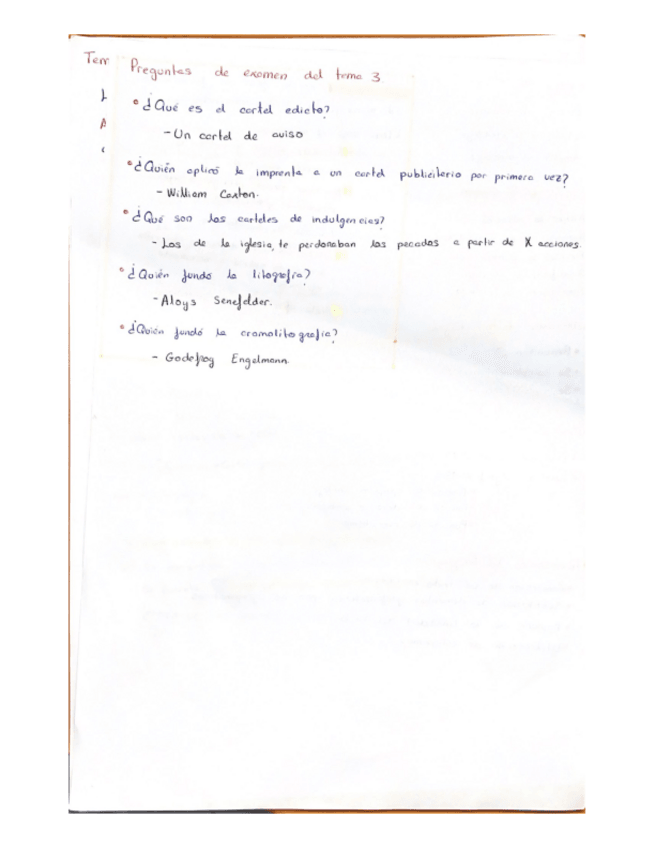 Tem
Preguntas de examen del tema 3
¿Qué es el cartel edicto?
- Un cartel de aviso
¿Quién aplicó la imprenta a un cartel publicitario por primera vez?
- William Caxton.
¿Qué son los carteles de indulgencias?
- Los de la iglesia, te perdonaban los pecados a partir de X acciones.
¿Quién fundo la litografía?
- Aloys Senefelder.
¿Quién fundó la cromolitografía?
- Godefroy Engelmann.